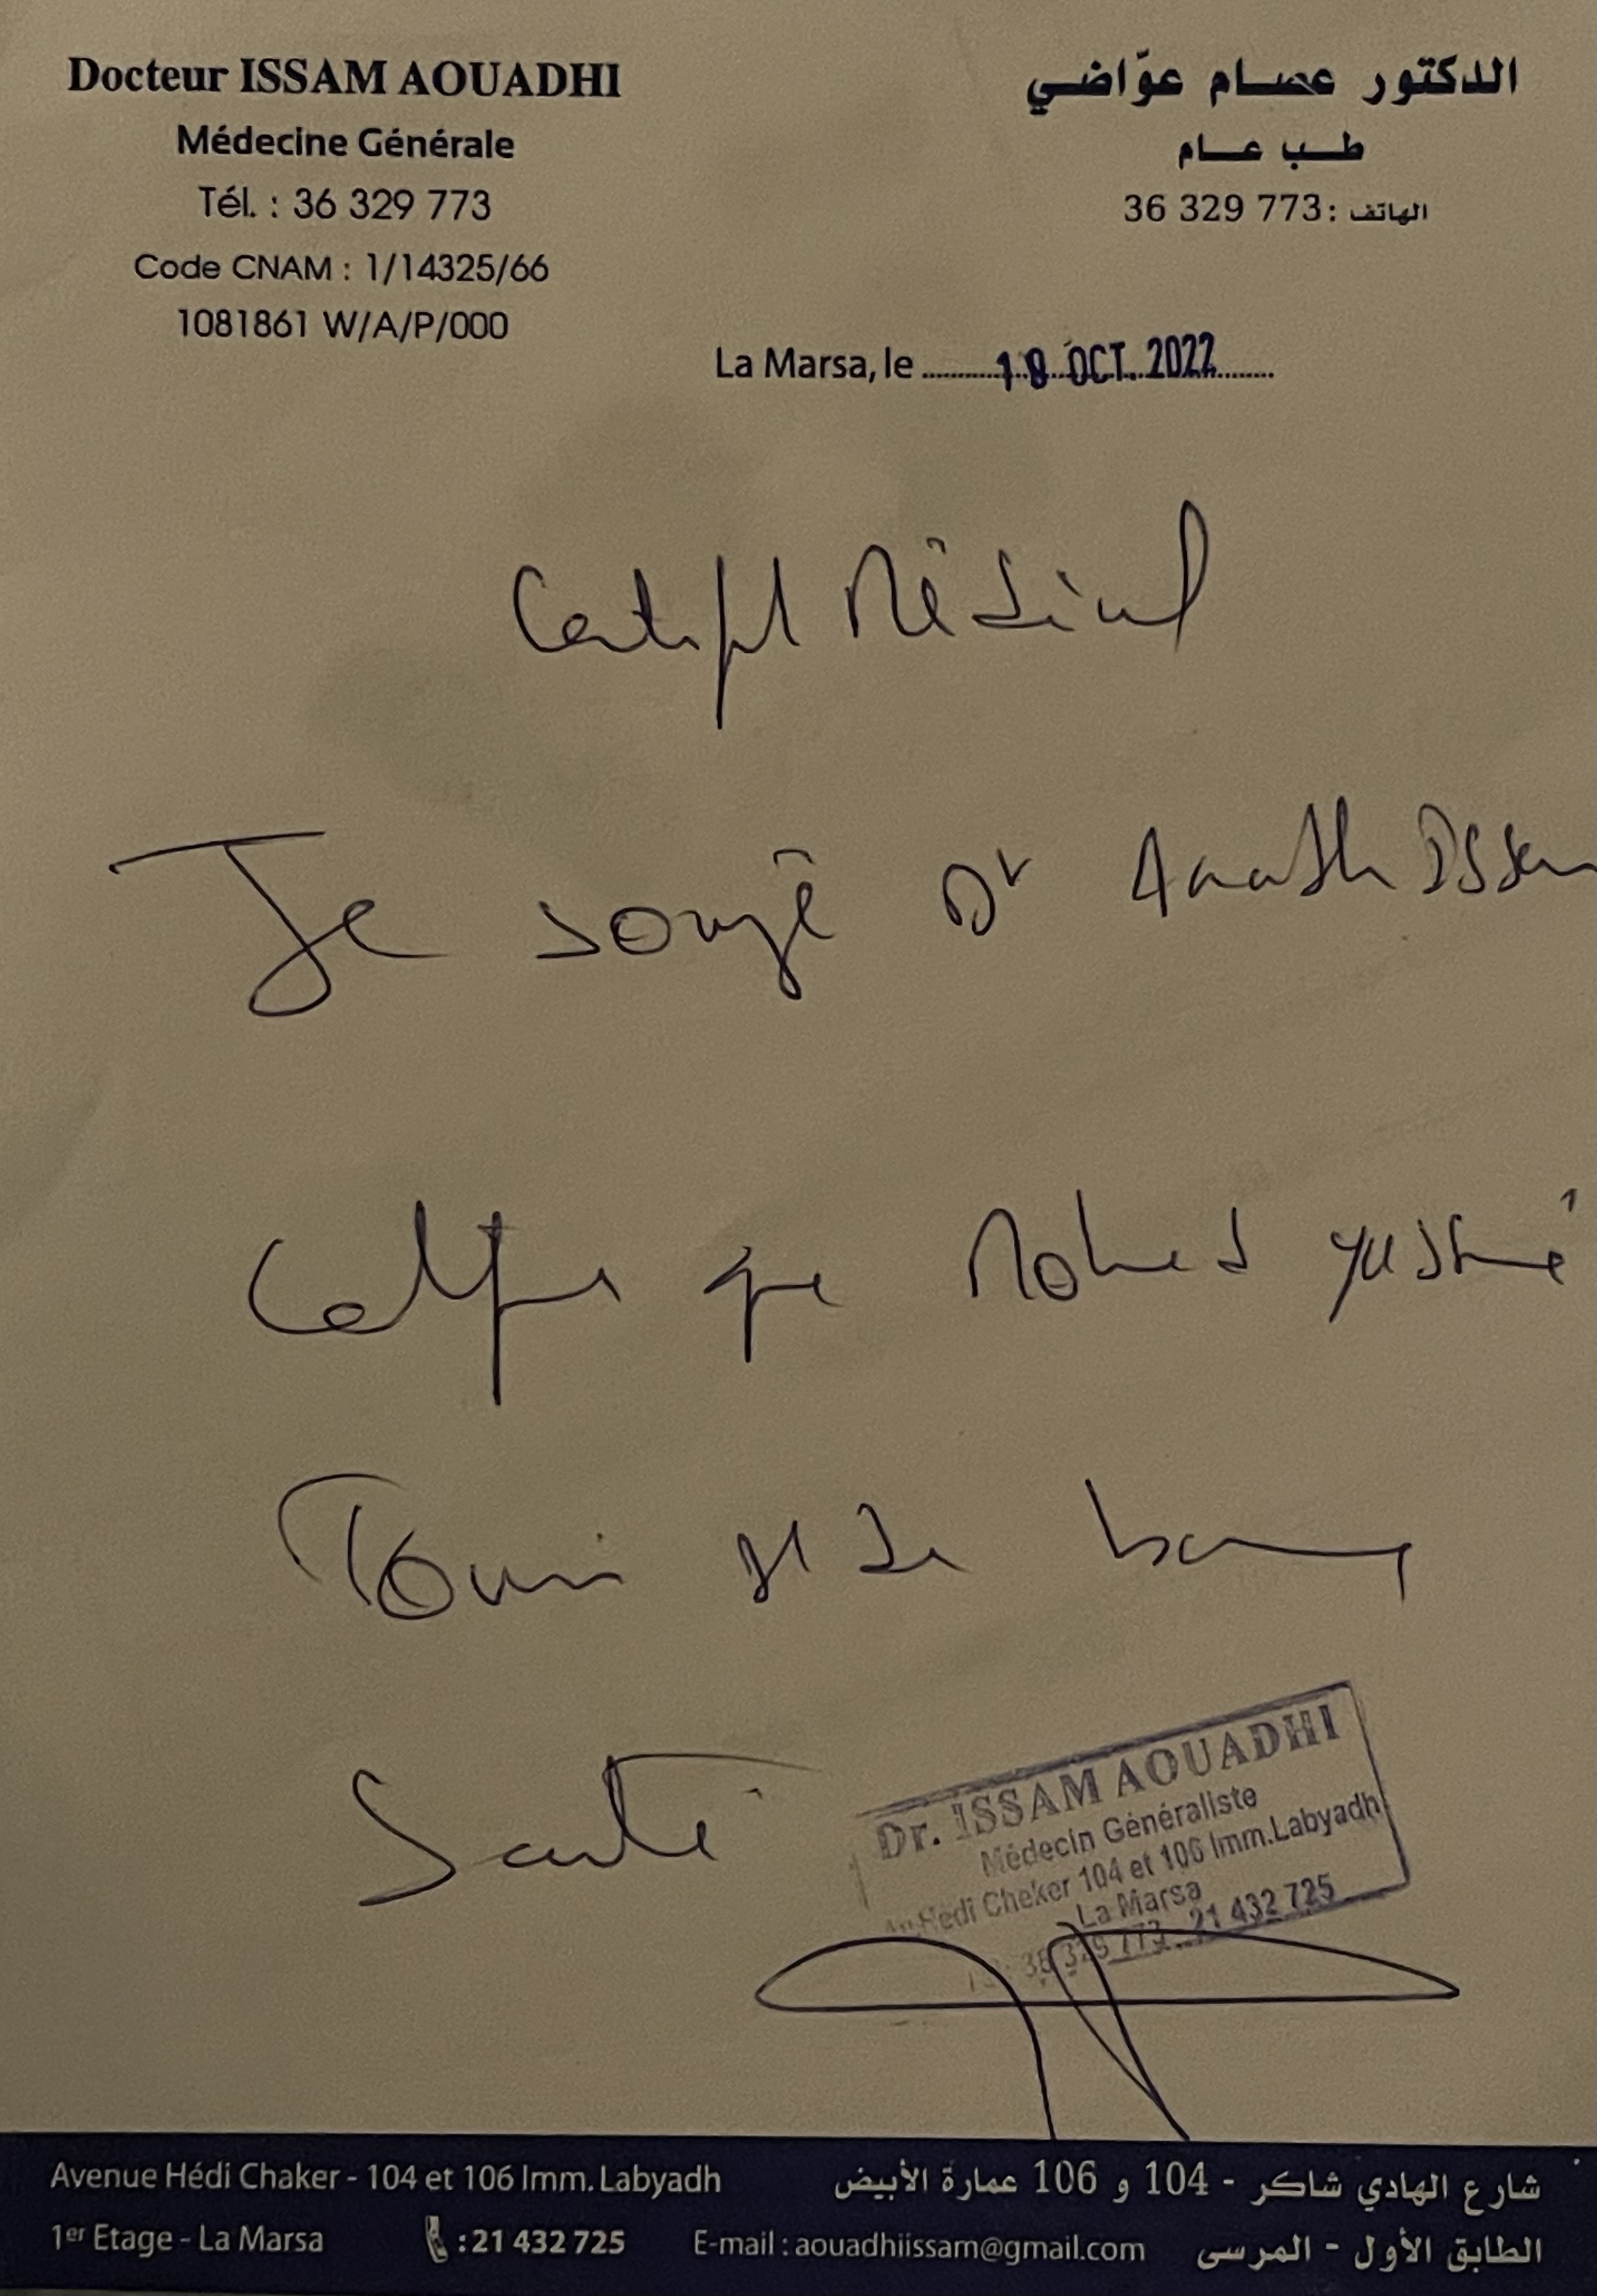 Docteur ISSAM AOUADHI
Médecine Générale
Tél. : 36 329 773
Code CNAM : 1/14325/66
1081861 W/A/P/000
الدكتور عصام عوّاضي
طب عام
الهاتف : 773 329 36
La Marsa, le OCT. 2022
Certificat Médical
Je soussigné Dr Aouadhi Issam
Certifie que Mohamed
est en bonne
Santé
Dr. ISSAM AOUADHI
Médecin Généraliste
Av. Hedi Cheker 104 et 106 Imm.Labyadh
La Marsa
36 329 773 - 21 432 725
Avenue Hédi Chaker - 104 et 106 Imm. Labyadh
1er Etage - La Marsa : 21 432 725 E-mail : aouadhiissam@gmail.com
شارع الهادي شاكر - 104 و 106 عمارة الأبيض
الطابق الأول - المرسى